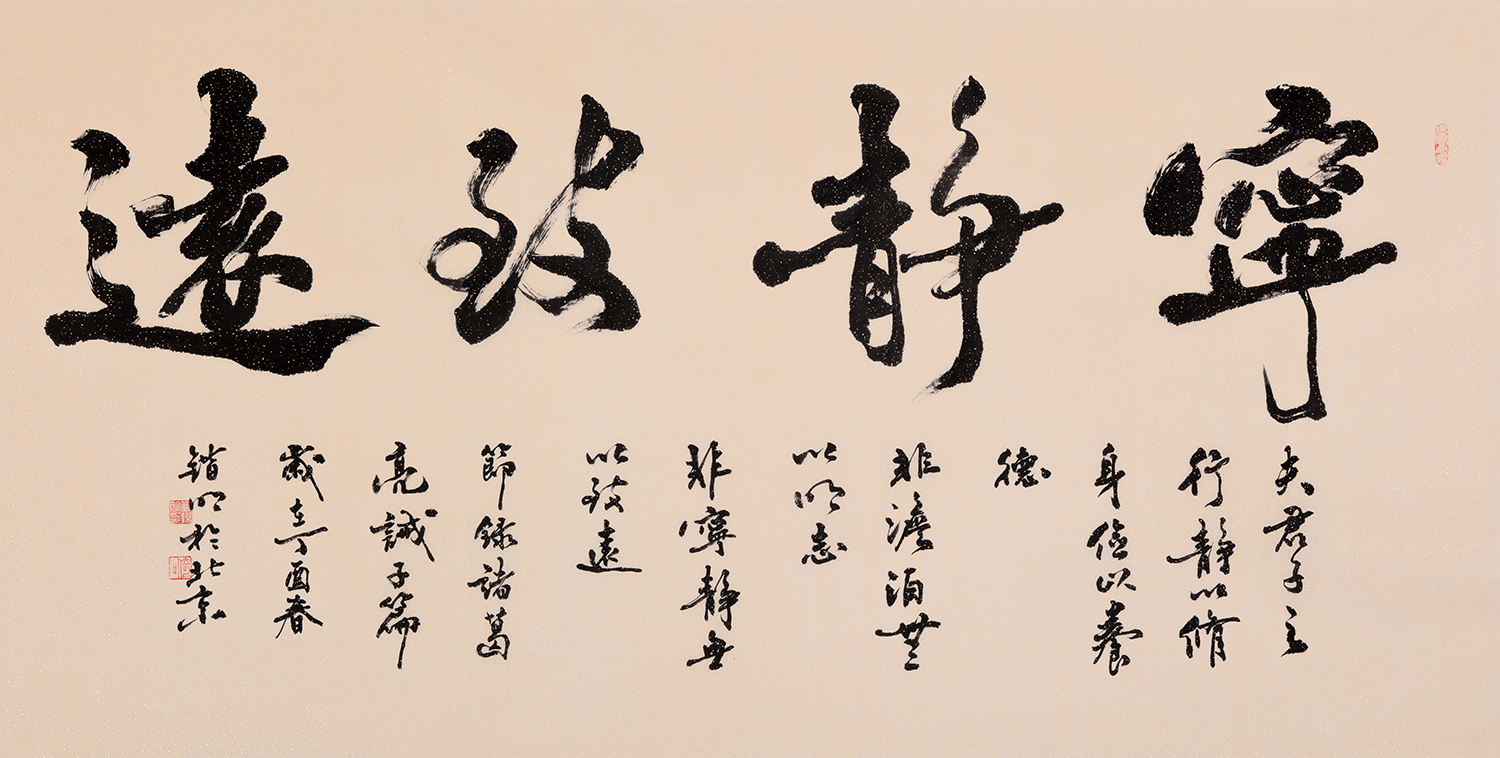 寧靜致遠
夫君子之
行静以脩
身儉以養
德
非澹泊無
以明志
非寧静無
以致遠
節録諸葛
亮誡子篇
歲在丁酉春
鍇明於北京